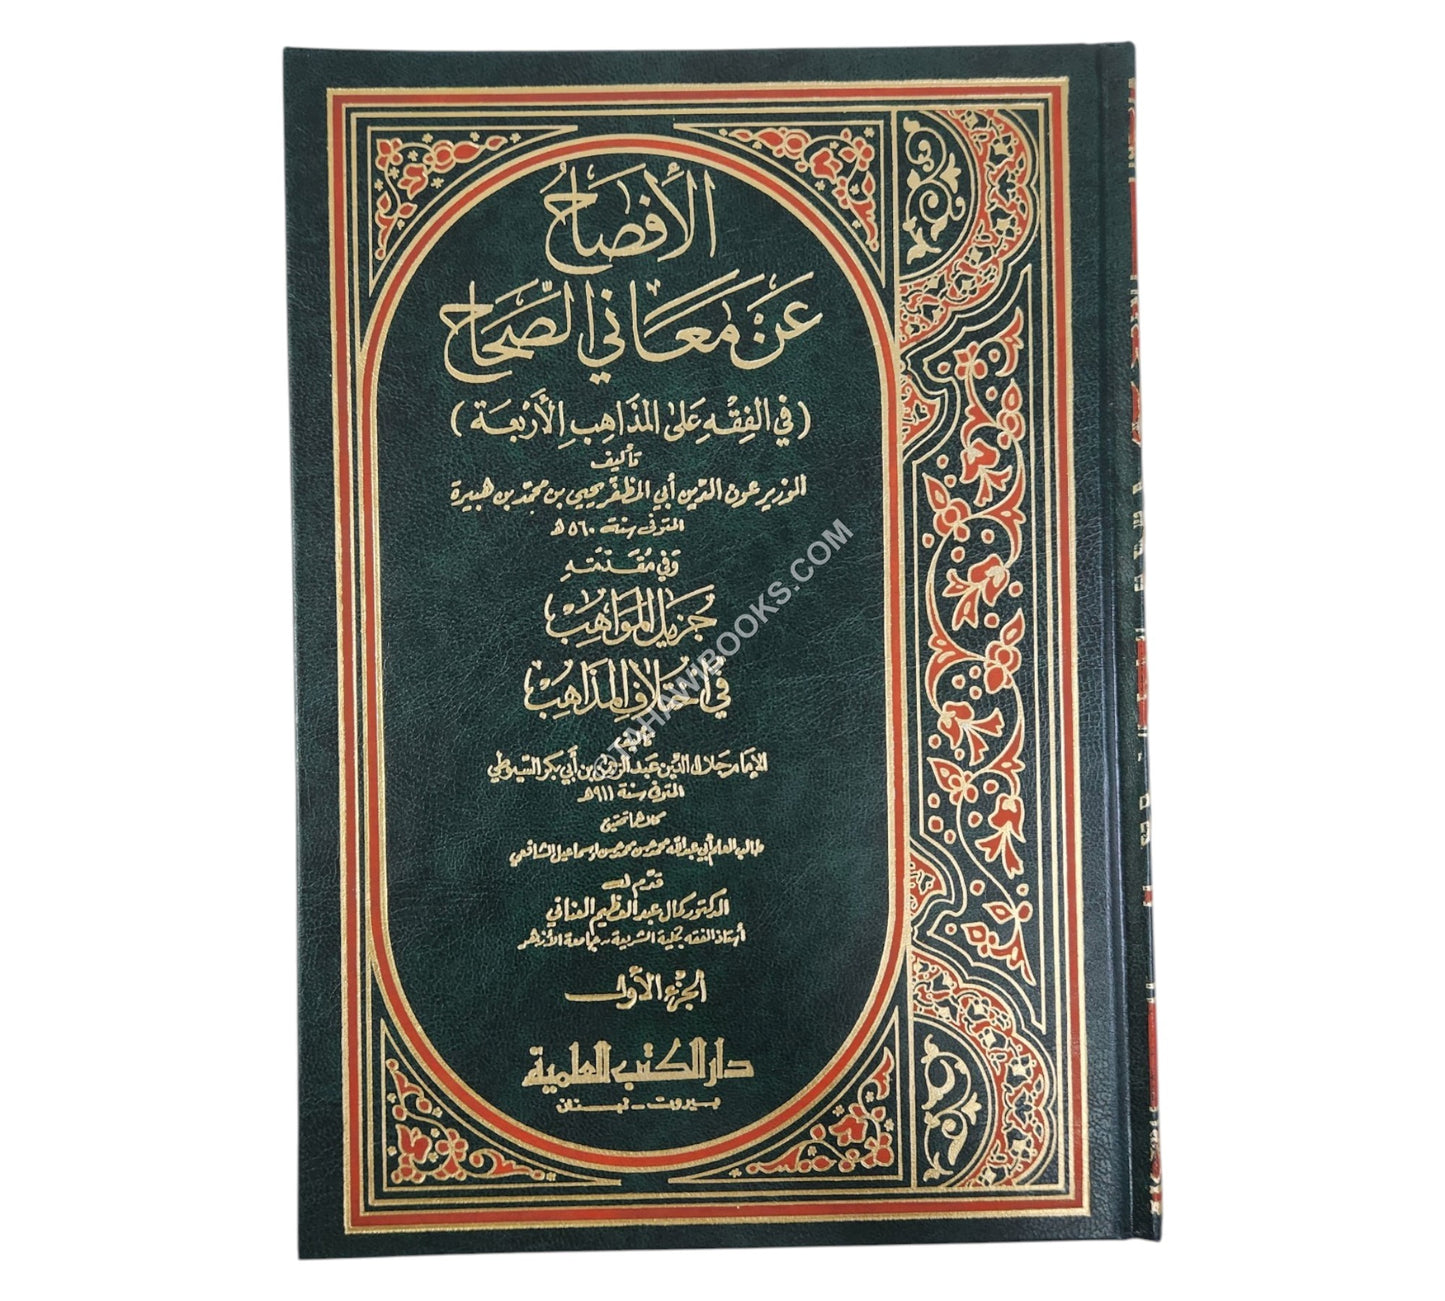 الأفصَاحُ
عَنْ مَعَاني الصِّحَاح
(في الفِقْهِ عَلى المَذَاهِبِ الأَرْبعَة)
تأليف
الوزير عون الدين أبي المظفر يحيى بن محمد بن هبيرة
المتوفى سنة ٥٦٠ هـ
وَفي مُقَدّمَتهِ
جَزيل المَوَاهِبْ
في اختِلافِ المذَاهِبْ
تأليف
الإمام جلال الدين عبد الرحمن بن أبي بكر السيوطي
المتوفى سنة ٩١١ هـ
كلاهما تحقيق
طالب العلم أبي عبد الله محمد حسن محمد حسن إسماعيل الشافعي
قدّم له
الدكتور كمال عبد العظيم العناني
أستاذ الفقه بكلية الشريعة - جامعة الأزهر
الجزء الأول
دار الكتب العلمية
بيروت - لبنان
©TAHAWIBOOKS.COM